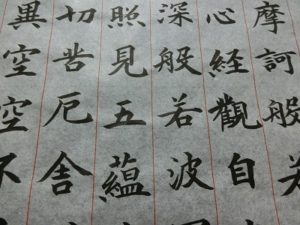 摩訶般若
心経觀自
深般若波
照見五蘊
切苦厄舎
異空空不